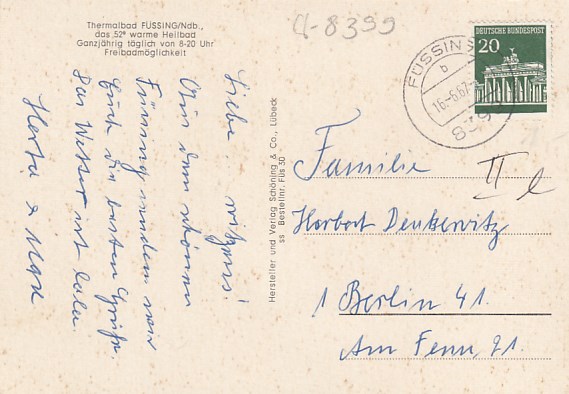 Thermalbad FÜSSING/Ndb.,
das „52° warme Heilbad
Ganzjährig täglich von 8-20 Uhr
Freibadmöglichkeit
4-8399
Liebe
Aus dem schönen
Füssing senden wir
Euch die besten Grüße.
Das Wetter ist lala.
Herta & Max
Hersteller und Verlag Schöning & Co., Lübeck
ss Bestellnr. Füs 30
FÜSSING
b
16.-6.67
DEUTSCHE BUNDESPOST
20
Familie
II
Herbert
1 Berlin 41.
Am Fenn 21.